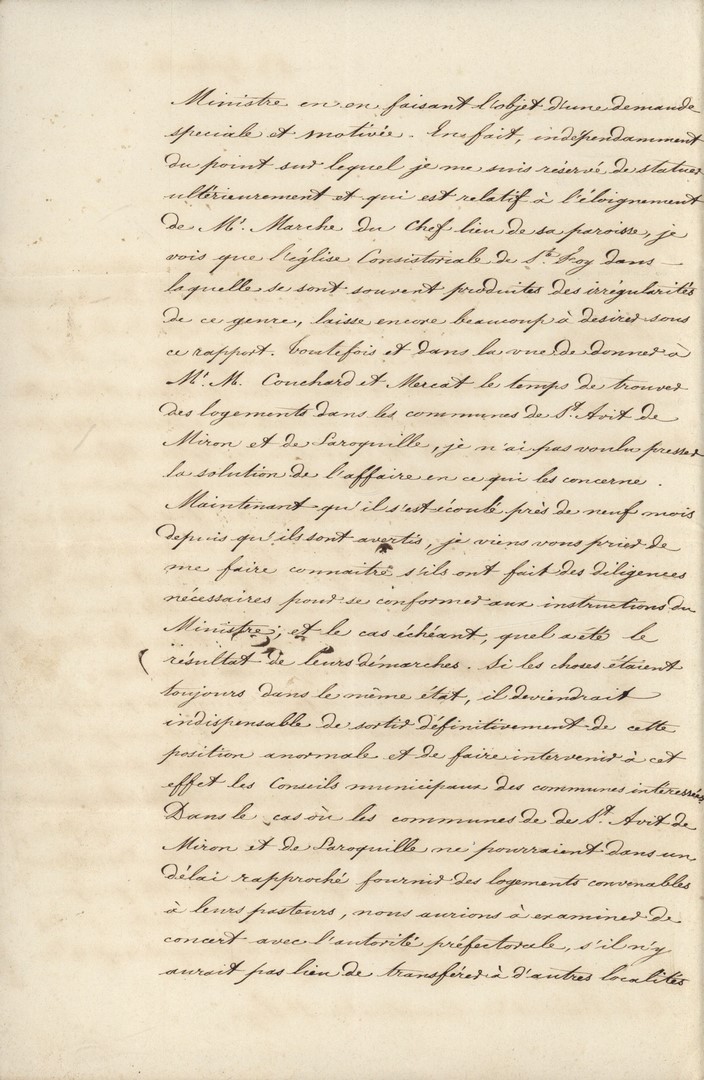 Ministre en en faisant l'objet d'une demande
speciale et motivée. En fait, indépendamment
du point sur lequel je me suis réservé de statuer
ultérieurement et qui est relatif à l'éloignement
de Mr. Marche du Chef lieu de sa paroisse, je
vois que l'église Consistoriale de Ste. Foy dans
laquelle se sont souvent produites des irrégularités
de ce genre, laisse encore beaucoup à désirer sous
ce rapport. Toutefois et dans la vue de donner à
Mr. M. Couchard et Mercat le temps de trouver
des logements dans les communes de St. Avit de
Miron et de Laroquille, je n'ai pas voulu presser
la solution de l'affaire en ce qui les concerne.
Maintenant qu'il s'est écoulé près de neuf mois
depuis qu'ils sont avertis, je viens vous prier de
me faire connaitre s'ils ont fait des diligences
nécessaires pour se conformer aux instructions du
Ministre; et le cas échéant, quel a été le
résultat de leurs démarches. Si les choses étaient
toujours dans le même état, il deviendrait
indispensable de sortir définitivement de cette
position anormale et de faire intervenir à cet
effet les Conseils municipaux des communes intéressées
Dans le cas où les communes de de St. Avit de
Miron et de Laroquille ne pourraient dans un
délai rapproché fournir des logements convenables
à leurs pasteurs, nous aurions à examiner de
concert avec l'autorité préfectorale, s'il n'y
aurait pas lieu de transférer à d'autres localités